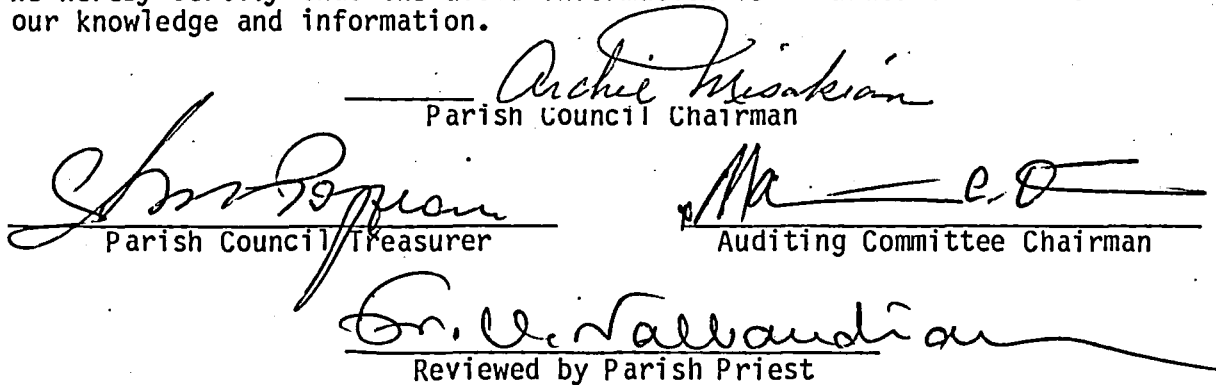 our knowledge and information.
Archie Misakian
Parish Council Chairman
Parish Council Treasurer
Auditing Committee Chairman
Fr. V. Nalbandian
Reviewed by Parish Priest